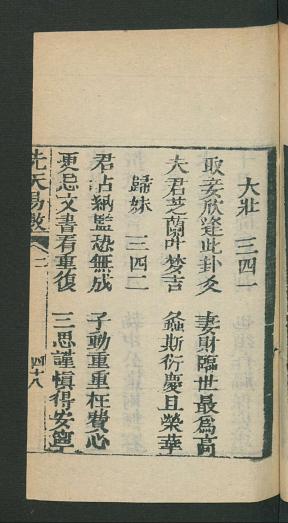 大壯 三四一
取妾欣逢此卦爻 妻財臨世最為高
夫君芝蘭叶梦吉 螽斯衍慶且榮華
歸妹 三四二
君占納監恐無成 子動重重枉費心
更忌文書有重復 三思謹慎得安寧
先天易數 二 四十八